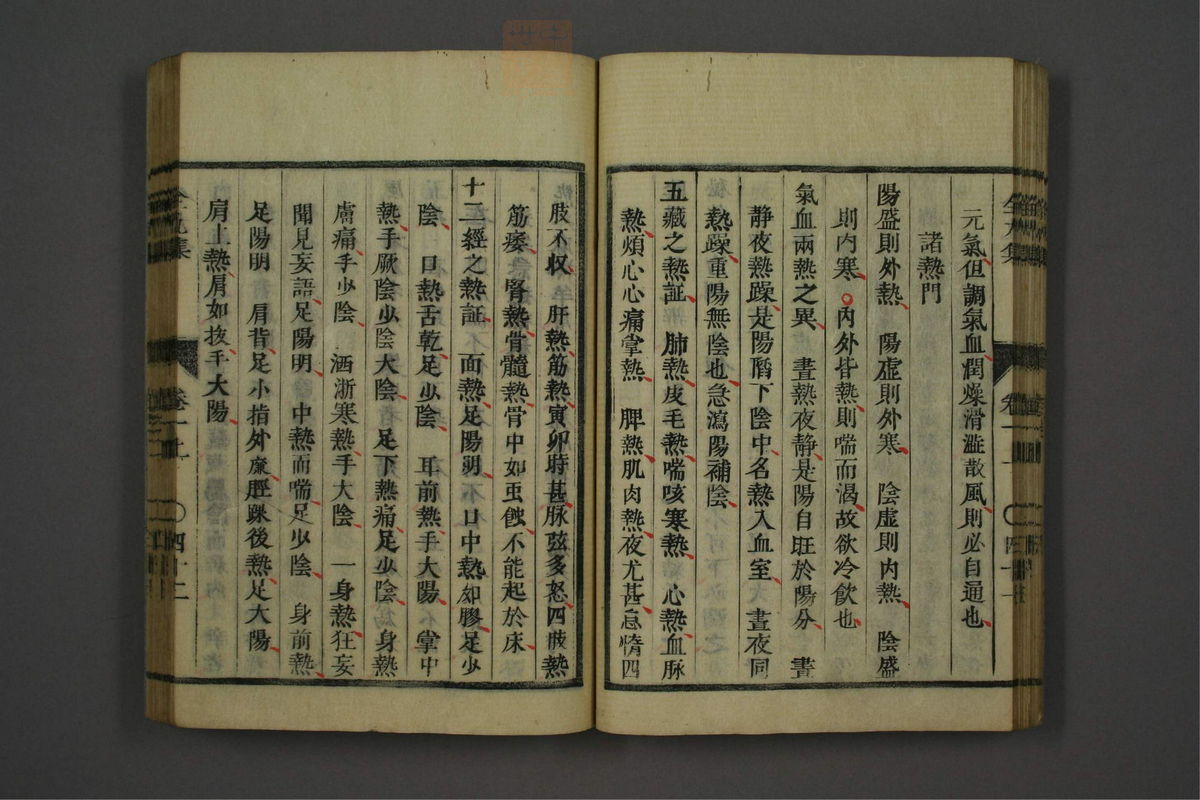 元氣但調氣血潤燥滑澁散風則必自通也
諸熱門
陽盛則外熱　陽虛則外寒　陰虛則內熱　陰盛
則內寒○內外皆熱則喘而渴故欲冷飮也
氣血兩熱之異　晝熱夜靜是陽自旺於陽分　晝
靜夜熱躁是陽䧟下陰中名熱入血室　晝夜同
熱躁重陽無陰也急瀉陽補陰
五藏之熱証　肺熱皮毛熱喘咳寒熱　心熱血脉
熱煩心心痛掌熱　脾熱肌肉熱夜尤甚怠惰四
肢不収　肝熱筋熱寅卯時甚脉弦多怒四肢熱
筋痿　腎熱骨髓熱骨中如虫蝕不能起於床
十二經之熱証　面熱足陽明　口中熱如膠足少
陰　口熱舌乾足少陰　耳前熱手大陽　掌中
熱手厥陰少陰大陰　足下熱痛足少陰　身熱
膚痛手少陰　洒浙寒熱手大陰　一身熱狂妄
聞見妄語足陽明　中熱而喘足少陰　身前熱
足陽明　肩背足小指外廉脛踝後熱足大陽
肩上熱肩如拔手大陽
卷一上
四十二